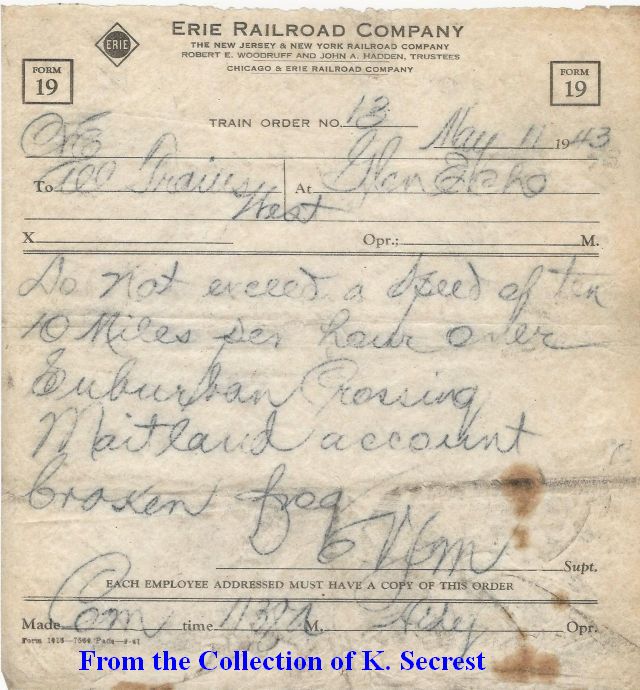 ERIE
ERIE RAILROAD COMPANY
THE NEW JERSEY & NEW YORK RAILROAD COMPANY
ROBERT E. WOODRUFF AND JOHN A. HADDEN, TRUSTEES
CHICAGO & ERIE RAILROAD COMPANY
FORM 19
FORM 19
TRAIN ORDER NO. 13
May 11 1943
C&E
To All Trains West At Glen Echo
X Opr.; M.
Do not exceed a speed of ten
10 Miles per hour over
Suburban Crossing
Maitland account
broken frog
Supt.
EACH EMPLOYEE ADDRESSED MUST HAVE A COPY OF THIS ORDER
Made Com time M. Opr.
From the Collection of K. Secrest